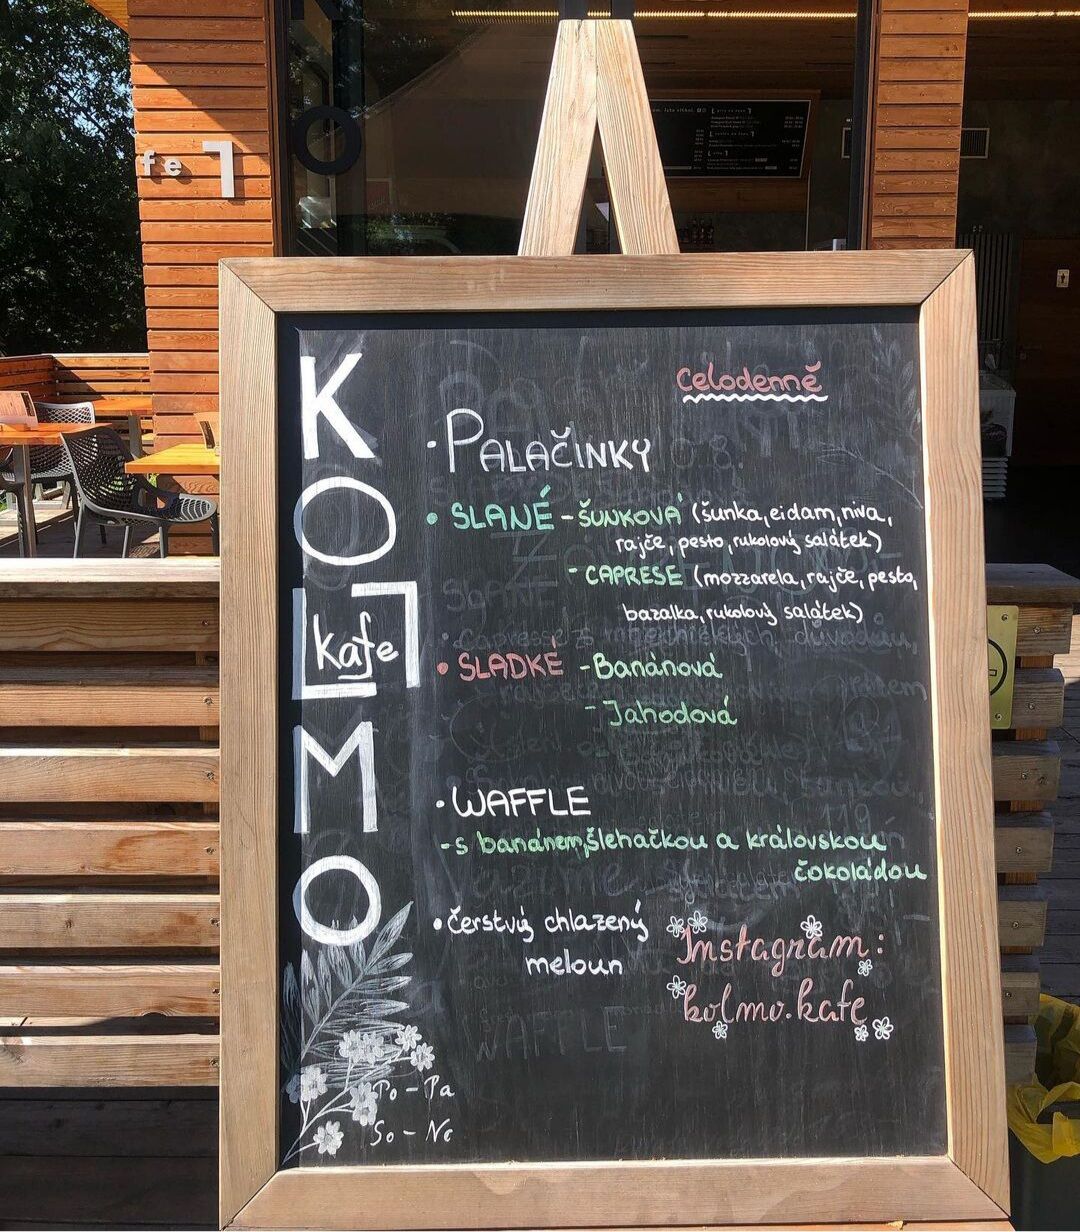 fe
KOLMO
kafe
Celodenně
• PALAČINKY
• SLANÉ - ŠUNKOVÁ (šunka, eidam, niva,
rajče, pesto, rukolový salátek)
- CAPRESE (mozzarela, rajče, pesto,
bazalka, rukolový salátek)
• SLADKÉ - Banánová
- Jahodová
• WAFFLE
- s banánem, šlehačkou a královskou
čokoládou
• čerstvý chlazený
meloun
Instagram:
kolmo.kafe
WAFFLE
Po - Pa
So - Ne